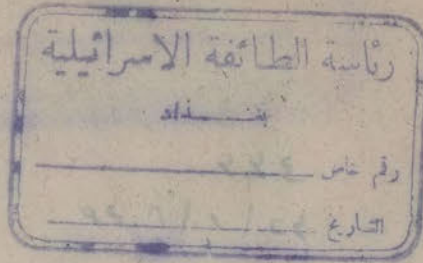 رئاسة الطائفة الاسرائيلية
بغداد
رقم خاص
التاريخ